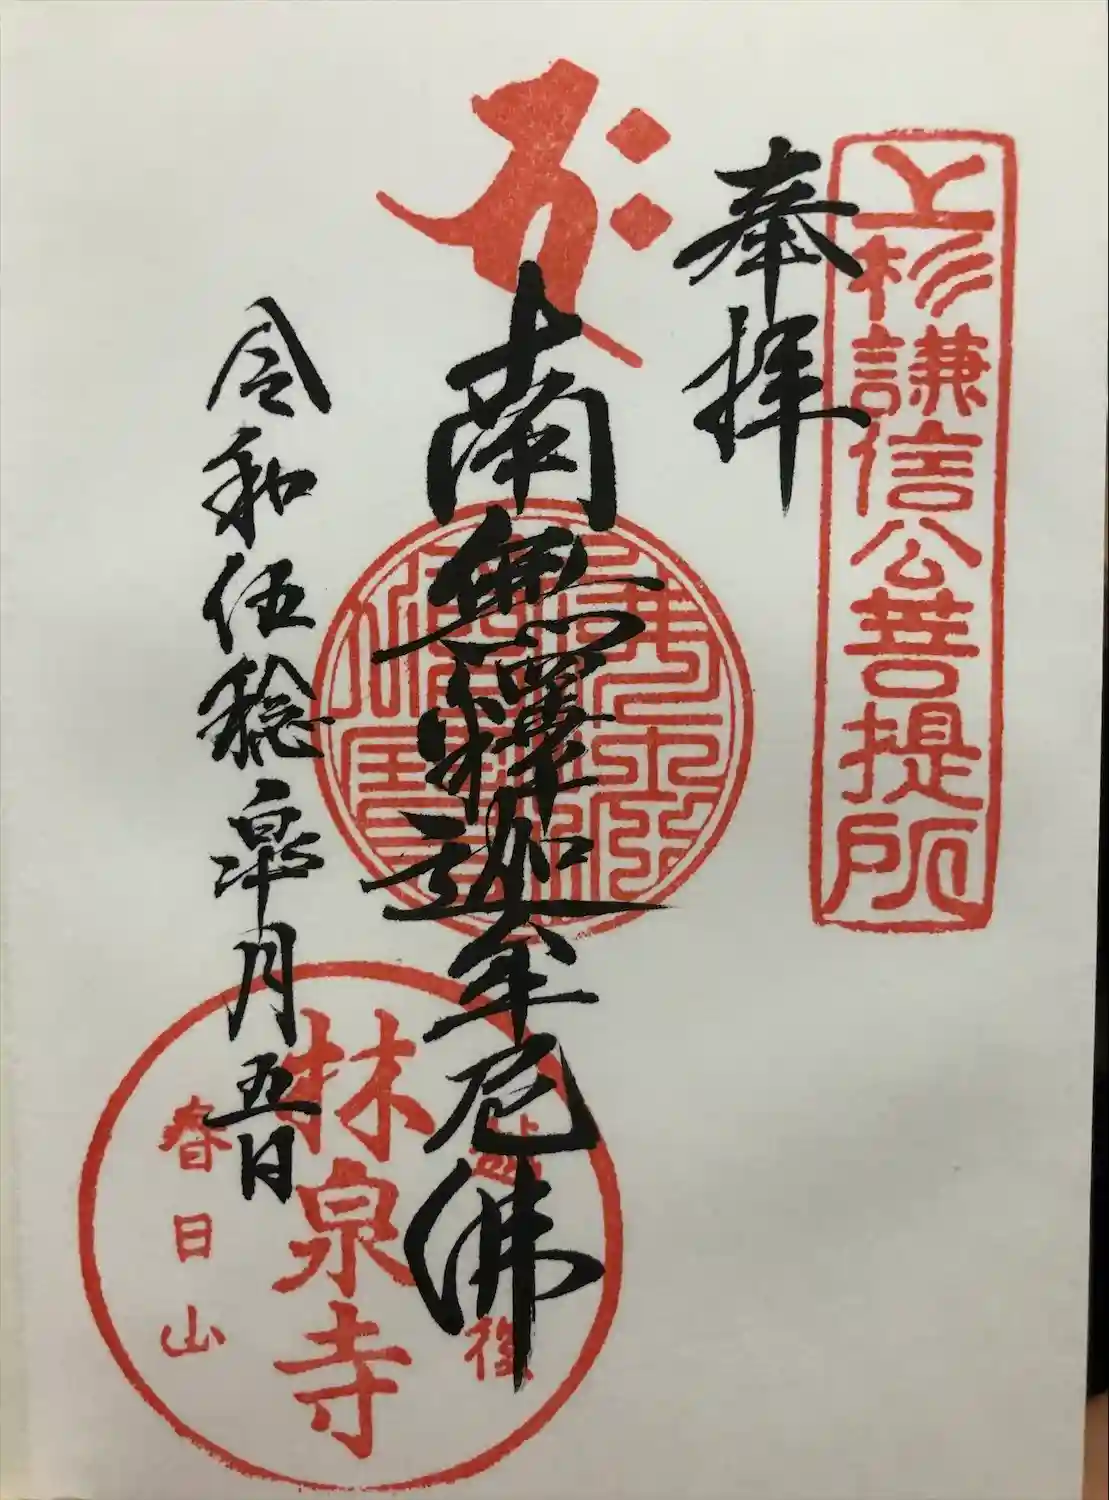 上杉謙信公菩提所
奉拝
南無釋迦牟尼佛
令和伍稔皐月五日
越後
林泉寺
春日山